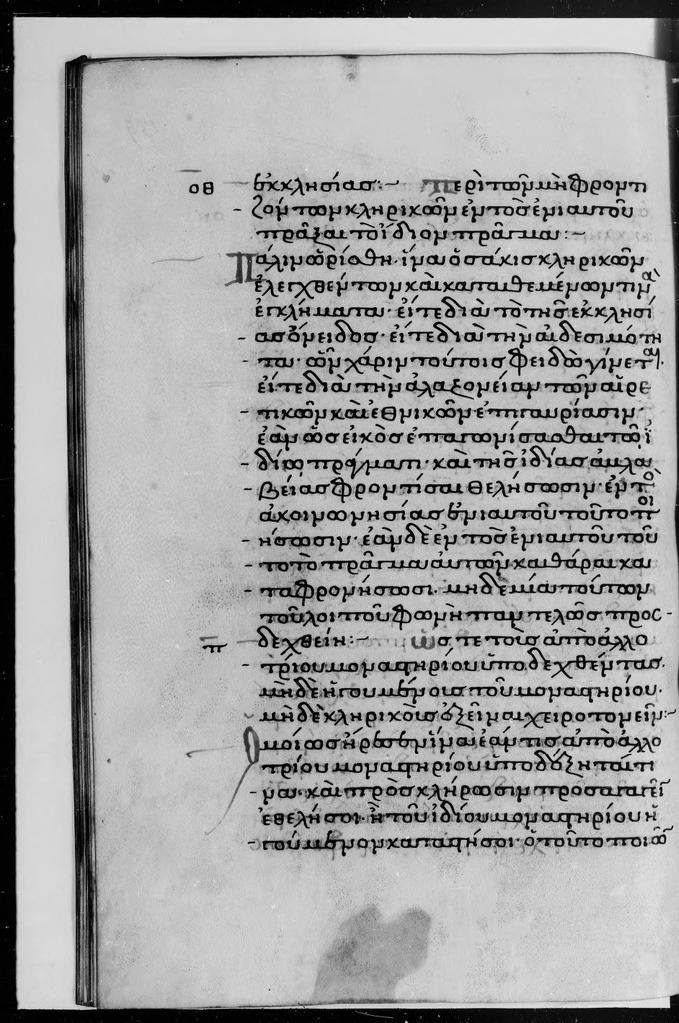 οθ ἐκκλησίας:– Περὶ τῶν μὴ φροντι
ζόντων κληρικῶν ἐντὸς ἐνιαυτοῦ
πρᾶξαι τὸ ἴδιον πρᾶγμα:–
Πάλιν ὡρίσθη. ἵνα ὁσάκις κληρικῶν
ἐλεγχθέντων καὶ κατατιθεμένων τινὰ
ἐγκλήματα· εἴτε διὰ τὸ τῆς ἐκκλησί
ας ὄνειδος· εἴτε διὰ τὴν αἰδεσιμότη
τα· ὧν χάριν τούτοις φειδὼ γίνεται·
εἴτε διὰ τὴν ἀλαζονείαν τῶν αἱρε
τικῶν καὶ ἐθνικῶν ἐπιγαυρίασιν·
ἐὰν ὡς εἰκὸς ἐπαγωνίσασθαι τῶ ἰ
δίω πράγματι· καὶ τῆς ἰδίας ἀμλα
βείας φροντίσαι θελήσωσιν· ἐντὸς
ἀκοινωνησίας ἐνιαυτοῦ τοῦτο ποι
ήσωσιν· ἐὰν δὲ ἐντὸς ἐνιαυτοῦ τοῦ
το τὸ πρᾶγμα αὐτῶν καθάραι κα
ταφρονήσωσι· μηδεμία τούτων
τοῦ λοιποῦ φωνὴ παντελῶς προσ-
π δεχθείη:– Ὥστε τοῖς ἀπὸ ἀλλο
τρίου μοναστηρίου ὑποδεχθέντας·
μηδὲ ἡγουμένοις τοῦ μοναστηρίου·
μηδὲ κληρικοῖς ἐξεῖναι χειροτονεῖν:–
Ὁμοίως ἤρεσεν ἵνα ἐάν τις ἀπὸ ἀλλο
τρίου μοναστηρίου ὑποδέξηταί τι
να· καὶ πρὸς κλήρωσιν προσαγαγεῖν
ἐθελήσοι· ἢ τοῦ ἰδίου μοναστηρίου ἡ
γούμενον καταστήσοι· ὁ τοῦτο ποιῶν